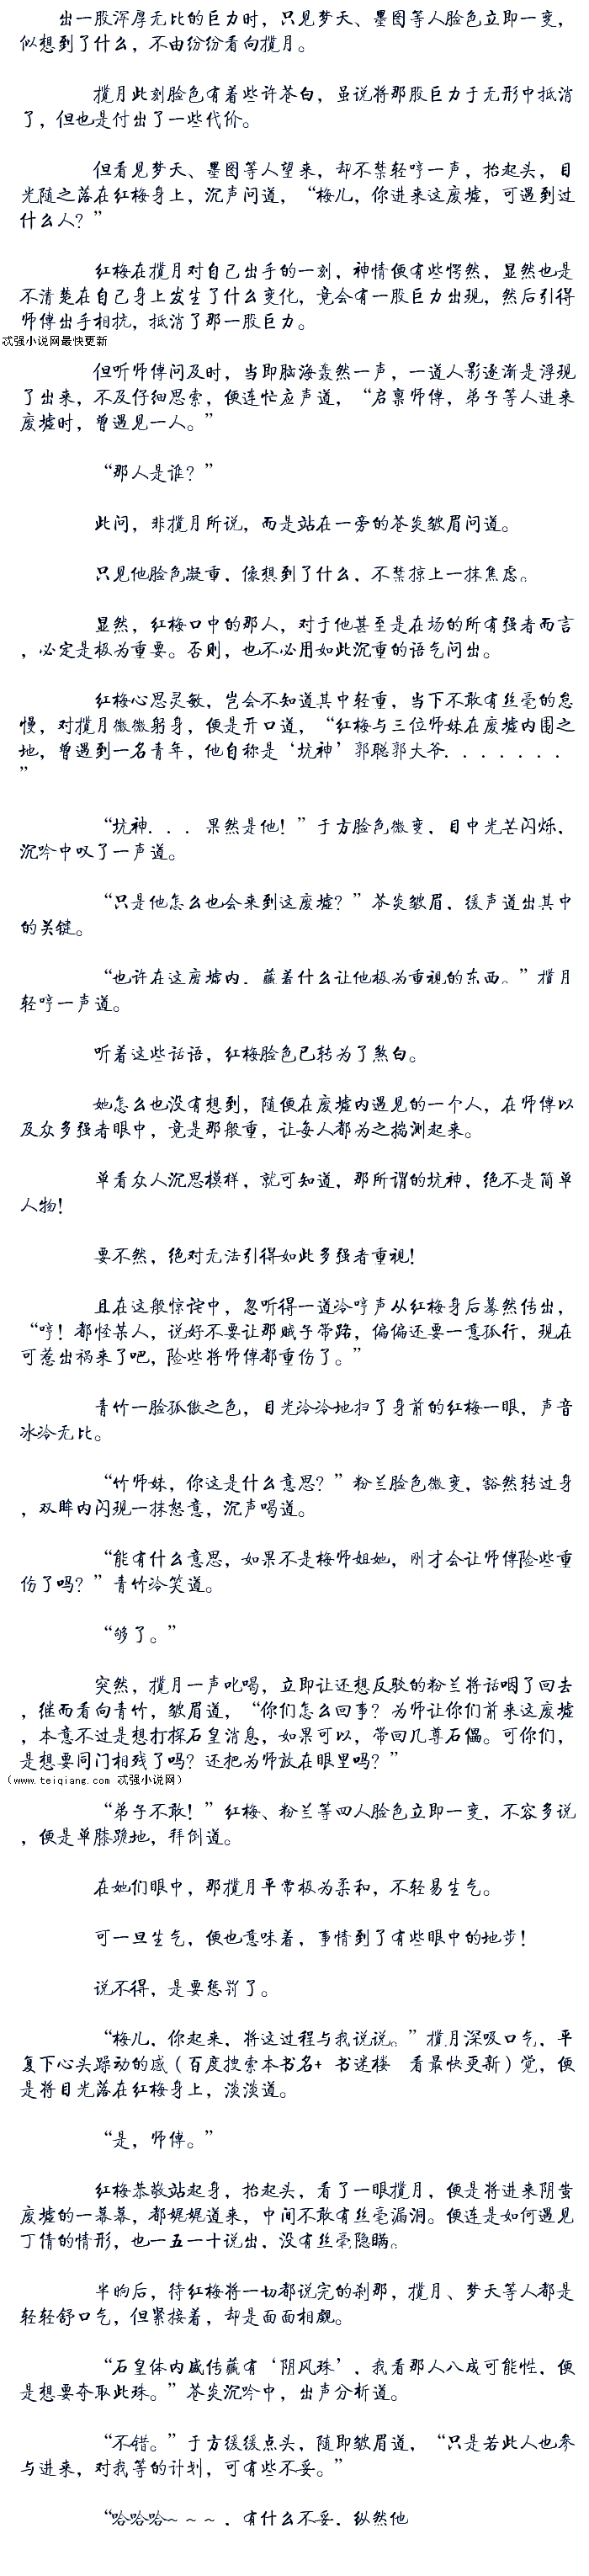 出一股浑厚无比的巨力时，只见梦天、墨图等人脸色立即一变，
似想到了什么，不由纷纷看向揽月。
揽月此刻脸色有着些许苍白，虽说将那股巨力于无形中抵消
了，但也是付出了一些代价。
但看见梦天、墨图等人望来，却不禁轻哼一声，抬起头，目
光随之落在红梅身上，沉声问道，“梅儿，你进来这废墟，可遇到过
什么人？”
红梅在揽月对自己出手的一刻，神情便有些愕然，显然也是
不清楚在自己身上发生了什么变化，竟会有一股巨力出现，然后引得
师傅出手相抗，抵消了那一股巨力。
忒强小说网最快更新
但听师傅问及时，当即脑海轰然一声，一道人影逐渐是浮现
了出来，不及仔细思索，便连忙应声道，“启禀师傅，弟子等人进来
废墟时，曾遇见一人。”
“那人是谁？”
此问，非揽月所说，而是站在一旁的苍炎皱眉问道。
只见他脸色凝重，像想到了什么，不禁掠上一抹焦虑。
显然，红梅口中的那人，对于他甚至是在场的所有强者而言
，必定是极为重要。否则，也不必用如此沉重的语气问出。
红梅心思灵敏，岂会不知道其中轻重，当下不敢有丝毫的怠
慢，对揽月微微躬身，便是开口道，“红梅与三位师妹在废墟内围之
地，曾遇到一名青年，他自称是‘坑神’郭聪郭大爷．．．．．．．
”
“坑神．．．果然是他！”于方脸色微变，目中光芒闪烁，
沉吟中叹了一声道。
“只是他怎么也会来到这废墟？”苍炎皱眉，缓声道出其中
的关键。
“也许在这废墟内，藏着什么让他极为重视的东西。”揽月
轻哼一声道。
听着这些话语，红梅脸色已转为了煞白。
她怎么也没有想到，随便在废墟内遇见的一个人，在师傅以
及众多强者眼中，竟是那般重，让每人都为之揣测起来。
单看众人沉思模样，就可知道，那所谓的坑神，绝不是简单
人物！
要不然，绝对无法引得如此多强者重视！
且在这般惊诧中，忽听得一道冷哼声从红梅身后蓦然传出，
“哼！都怪某人，说好不要让那贼子带路，偏偏还要一意孤行，现在
可惹出祸来了吧，险些将师傅都重伤了。”
青竹一脸孤傲之色，目光冷冷地扫了身前的红梅一眼，声音
冰冷无比。
“竹师妹，你这是什么意思？”粉兰脸色微变，豁然转过身
，双眸内闪现一抹怒意，沉声喝道。
“能有什么意思，如果不是梅师姐她，刚才会让师傅险些重
伤了吗？”青竹冷笑道。
“够了。”
突然，揽月一声叱喝，立即让还想反驳的粉兰将话咽了回去
，继而看向青竹，皱眉道，“你们怎么回事？为师让你们前来这废墟
，本意不过是想打探石皇消息，如果可以，带回几尊石傀。可你们，
是想要同门相残了吗？还把为师放在眼里吗？”
（www.teiqiang.com 忒强小说网）
“弟子不敢！”红梅、粉兰等四人脸色立即一变，不容多说
，便是单膝跪地，拜倒道。
在她们眼中，那揽月平常极为柔和，不轻易生气。
可一旦生气，便也意味着，事情到了有些眼中的地步！
说不得，是要惩罚了。
“梅儿，你起来，将这过程与我说说。”揽月深吸口气，平
复下心头躁动的感（百度搜索本书名+ 书迷楼 看最快更新）觉，便
是将目光落在红梅身上，淡淡道。
“是，师傅。”
红梅恭敬站起身，抬起头，看了一眼揽月，便是将进来阴蚩
废墟的一幕幕，都娓娓道来，中间不敢有丝毫漏洞。便连是如何遇见
丁倩的情形，也一五一十说出，没有丝毫隐瞒。
半晌后，待红梅将一切都说完的刹那，揽月、梦天等人都是
轻轻舒口气，但紧接着，却是面面相觑。
“石皇体内盛传藏有‘阴风珠’，我看那人八成可能性，便
是想要夺取此珠。”苍炎沉吟中，出声分析道。
“不错。”于方缓缓点头，随即皱眉道，“只是若此人也参
与进来，对我等的计划，可有些不妥。”
“哈哈哈~~~，有什么不妥，纵然他